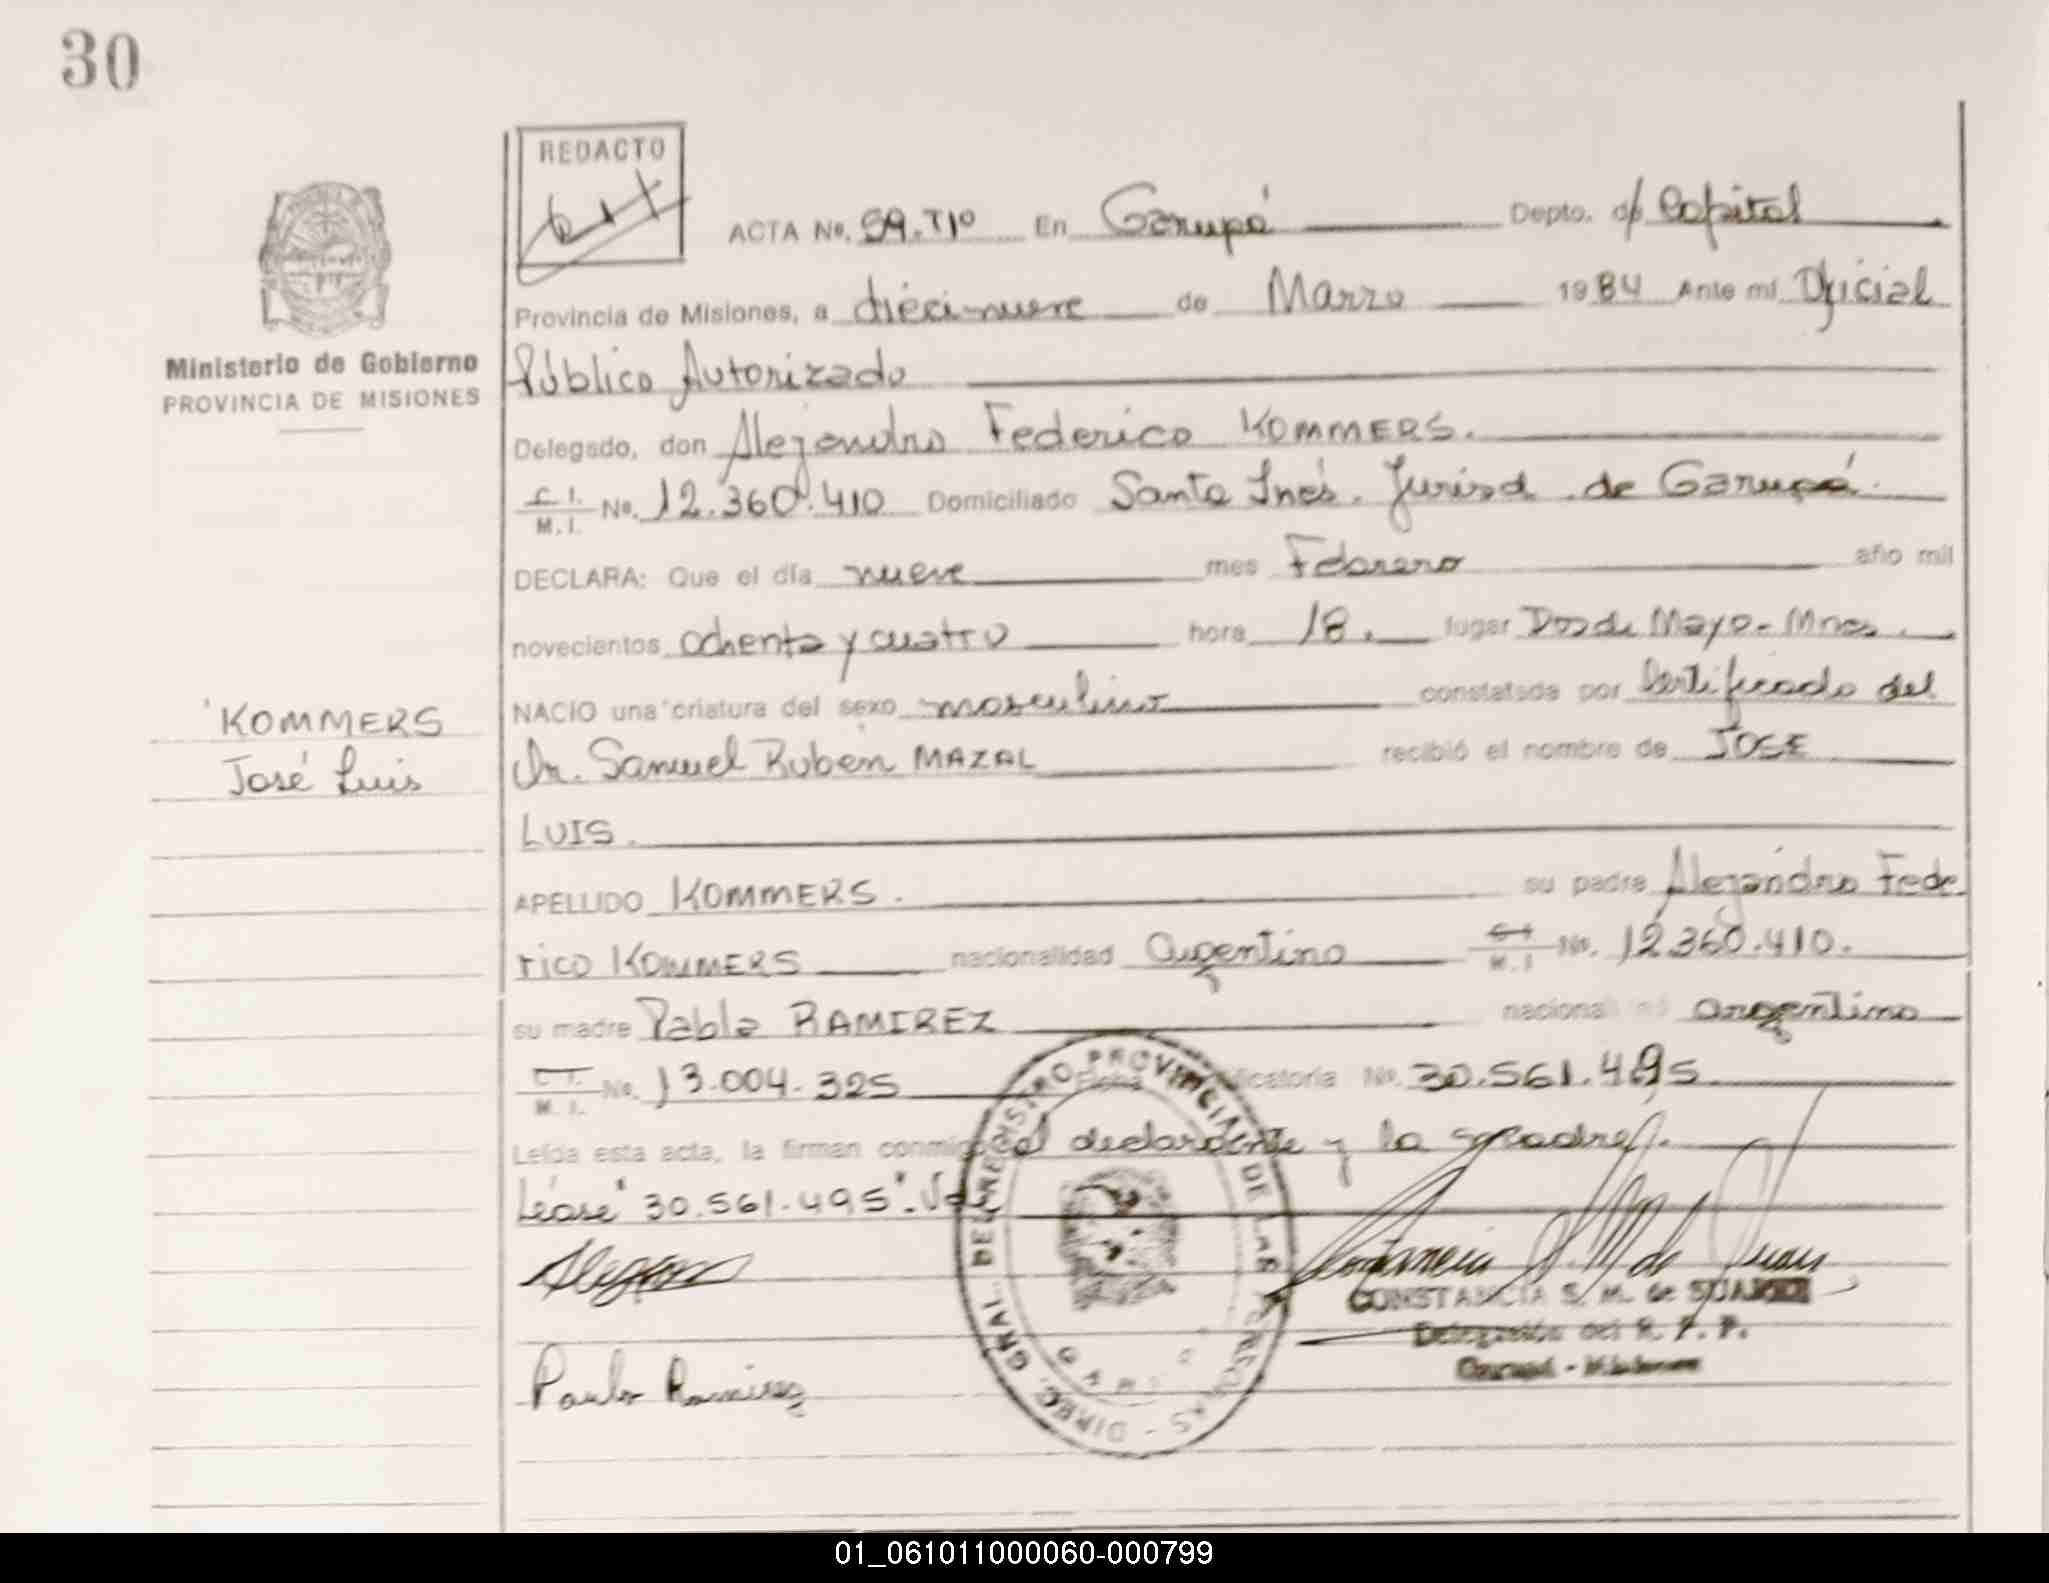 30
REDACTO
ACTA No. 59. TIº En Garupá Depto. d/ Capital
Provincia de Misiones, a diecinueve de Marzo 1984 Ante mí Oficial
Ministerio de Gobierno
PROVINCIA DE MISIONES
Público Autorizado
Delegado, don Alejandro Federico KOMMERS.
C. I.
M. I. No. 12.360.410 Domiciliado Santa Inés. Jurisd. de Garupá.
DECLARA: Que el día nueve mes Febrero año mil
novecientos ochenta y cuatro hora 18. lugar Dos de Mayo - Mnes.
KOMMERS
José Luis
NACIO una criatura del sexo masculino constatada por Certificado del
Dr. Samuel Ruben MAZAL recibió el nombre de JOSE
LUIS.
APELLIDO KOMMERS. su padre Alejandro Fede
rico KOMMERS nacionalidad Argentino C. I.
M. I. No. 12.360.410.
su madre Pabla RAMIREZ nacional argentina
C. I.
M. I. No. 13.004.325 Ficha icatoria No. 30.561.495
Leída esta acta, la firman conmigo el declarante y la madre.
Léase "30.561.495".
Pabla Ramirez
DIREC. GRAL. DEL REGISTRO PROVINCIAL DE LAS PERSONAS
CONSTANCIA S. M. de SUAREZ
Delegación del R. P. P.
Garupá - Misiones
01_061011000060-000799